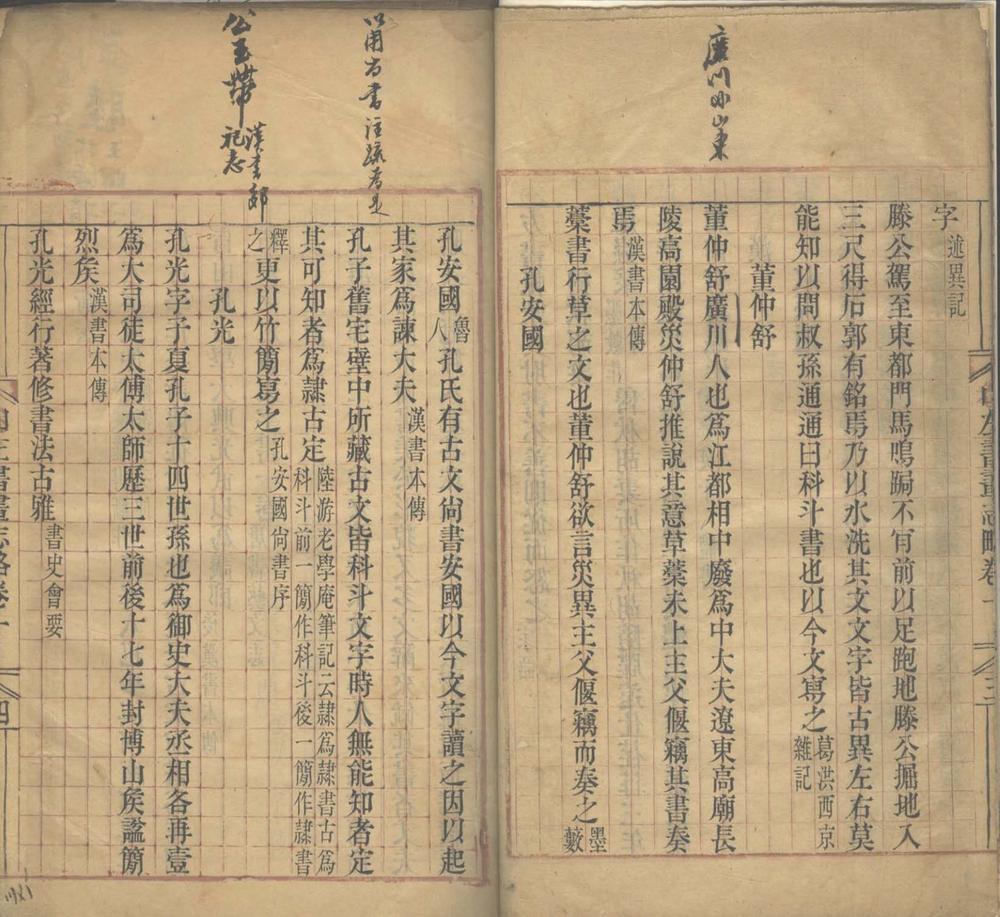 廣川
山東
字述異記
滕公駕至東都門馬鳴跼不肯前以足跑地滕公掘地入
三尺得石郭有銘焉乃以水洗其文文字皆古異左右莫
能知以問叔孫通通曰科斗書也以今文寫之葛洪西京雜記
董仲舒
董仲舒廣川人也爲江都相中廢爲中大夫遼東高廟長
陵高園殿災仲舒推說其意草藁未上主父偃竊其書奏
焉漢書本傳
藁書行草之文也董仲舒欲言災異主父偃竊而奏之墨藪
孔安國
左書畫志略卷一
三
尚書注疏
公玉帶漢書郊祀志
孔安國魯人孔氏有古文尙書安國以今文字讀之因以起
其家爲諫大夫漢書本傳
孔子舊宅壁中所藏古文皆科斗文字時人無能知者定
其可知者爲隷古定陸游老學庵筆記云隷爲隷書古爲科斗前一簡作科斗後一簡作隷書
釋之更以竹簡寫之孔安國尙書序
孔光
孔光字子夏孔子十四世孫也爲御史大夫丞相各再壹
爲大司徒太傅太師歷三世前後十七年封博山矦謚簡
烈矦漢書本傳
孔光經行著修書法古雅書史會要
四